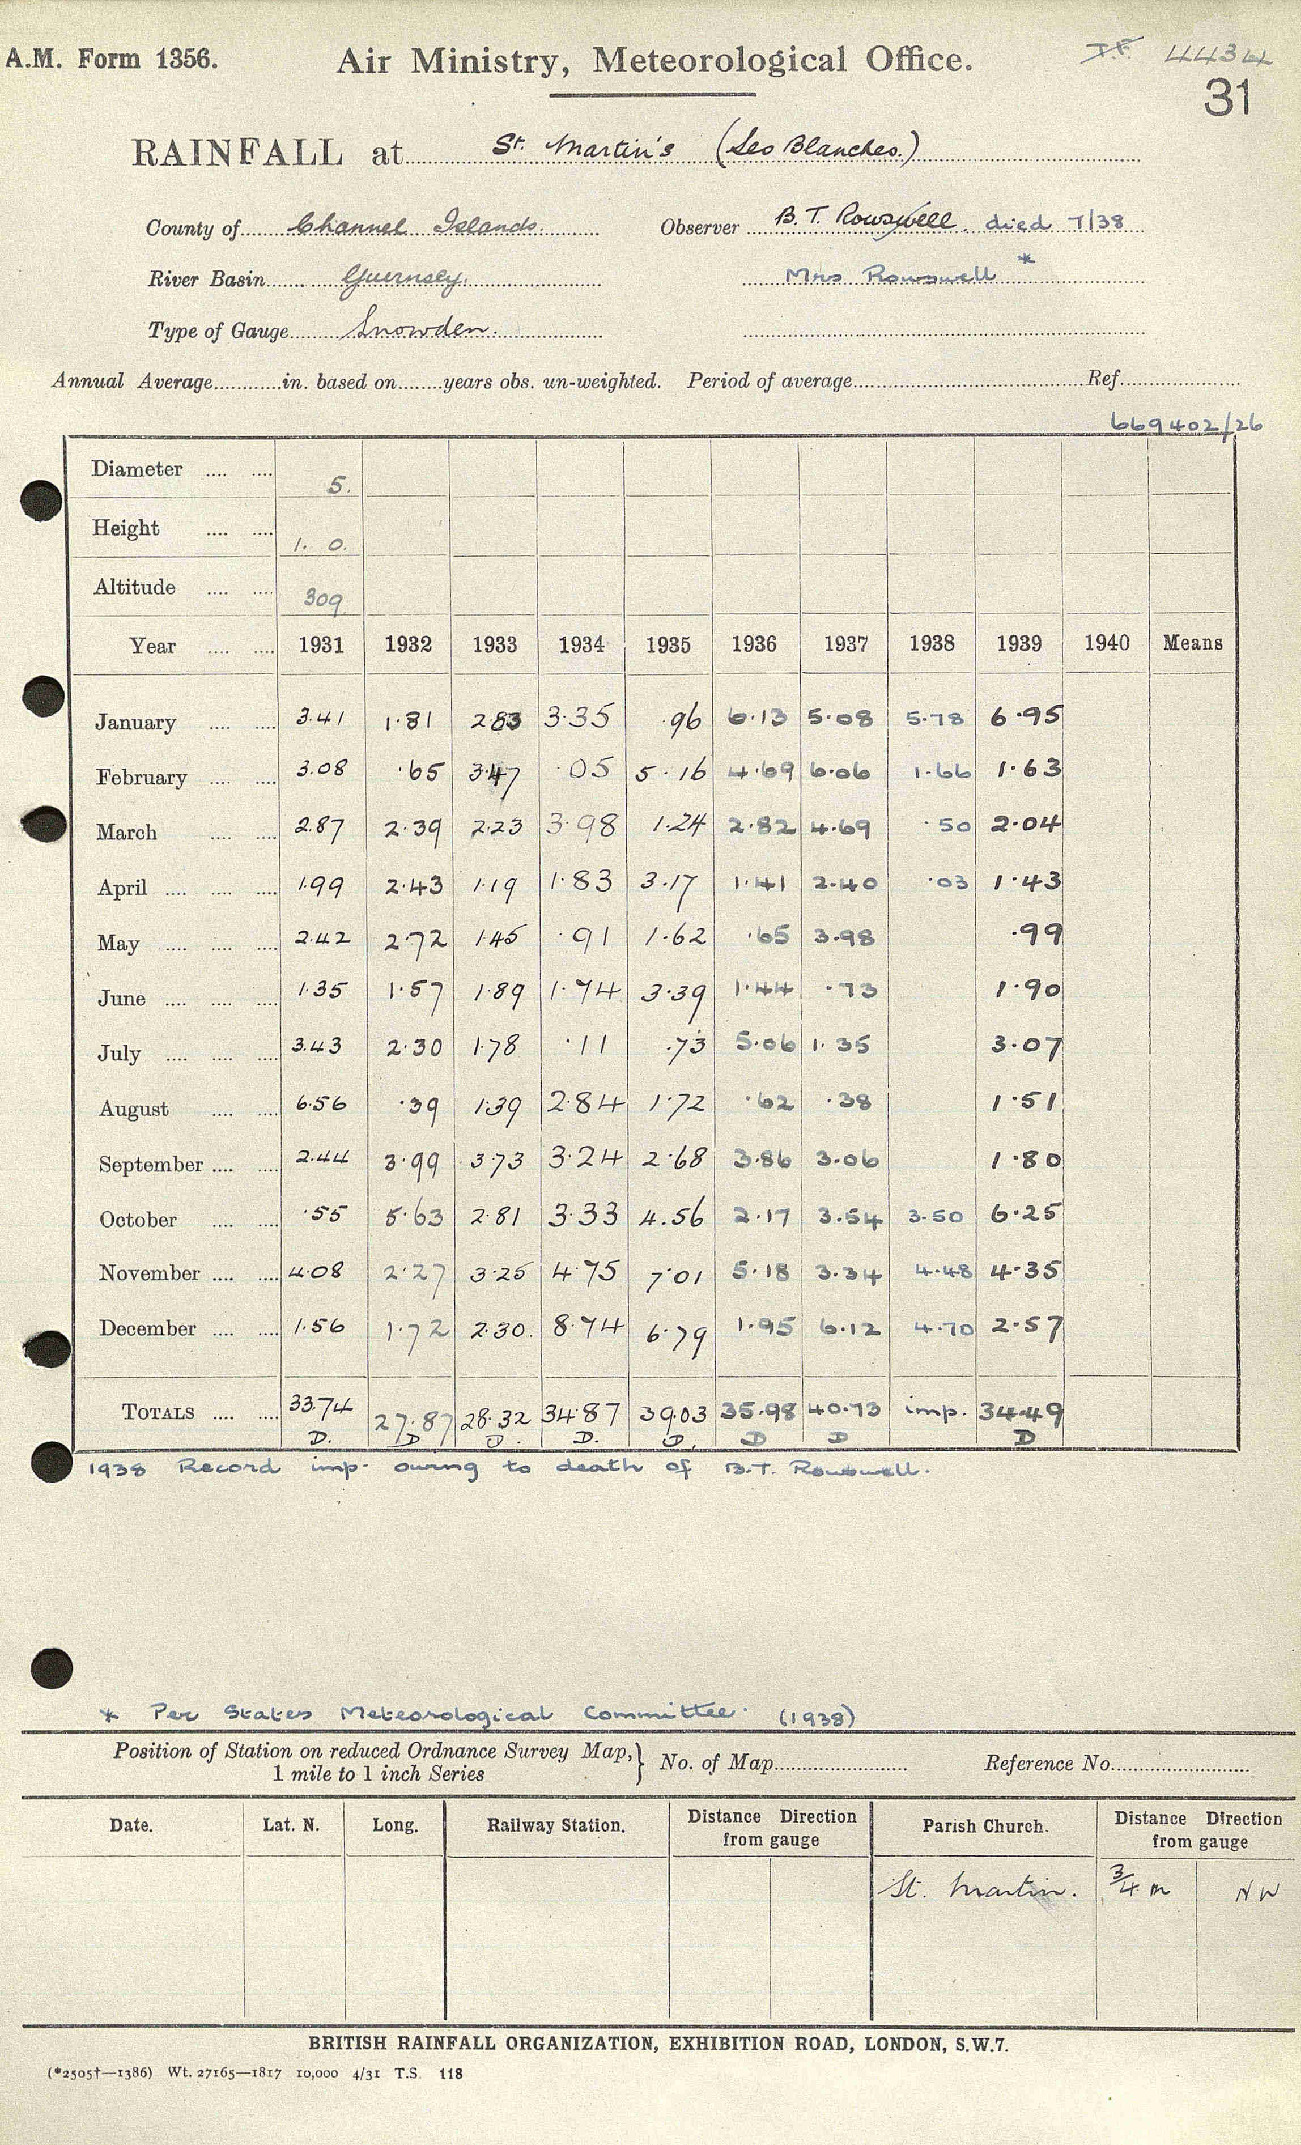 A.M. Form 1356. Air Ministry, Meteorological Office. I.F. 4434
31
RAINFALL at St. Martin's (Les Blanches.)
County of Channel Islands. Observer B. T. Rowswell. died 7/38
River Basin Guernsey. Mrs Rowswell *
Type of Gauge Snowden.
Annual Average in. based on years obs. un-weighted. Period of average Ref.
669402/26
Diameter .... .... 5.
Height .... .... 1. 0.
Altitude .... .... 309
Year .... .... 1931 1932 1933 1934 1935 1936 1937 1938 1939 1940 Means
January .... .... 3.41 1.81 2.83 3.35 .96 6.13 5.08 5.78 6.95
February .... .... 3.08 .65 3.47 .05 5.16 4.69 6.06 1.66 1.63
March .... .... 2.87 2.39 2.23 3.98 1.24 2.82 4.69 .50 2.04
April .... .... .... 1.99 2.43 1.19 1.83 3.17 1.41 2.40 .03 1.43
May .... .... .... 2.42 2.72 1.45 .91 1.62 .65 3.98 .99
June .... .... .... 1.35 1.57 1.89 1.74 3.39 1.44 .73 1.90
July .... .... .... 3.43 2.30 1.78 .11 .73 5.06 1.35 3.07
August .... .... 6.56 .39 1.39 2.84 1.72 .62 .38 1.51
September .... .... 2.44 3.99 3.73 3.24 2.68 3.86 3.06 1.80
October .... .... .55 5.63 2.81 3.33 4.56 2.17 3.54 3.50 6.25
November .... .... 4.08 2.27 3.25 4.75 7.01 5.18 3.34 4.48 4.35
December .... .... 1.56 1.72 2.30. 8.74 6.79 1.95 6.12 4.70 2.57
TOTALS .... .... 33.74 27.87 28.32 34.87 39.03 35.98 40.73 imp. 34.49
D. D D. D. D. D D D
1938 Record imp. owing to death of B.T. Rowswell.
* Per States Meteorological Committee. (1938)
Position of Station on reduced Ordnance Survey Map, } No. of Map Reference No.
1 mile to 1 inch Series
Date. Lat. N. Long. Railway Station. Distance Direction from gauge Parish Church. Distance Direction from gauge
St. Martin. 3/4 m NW
BRITISH RAINFALL ORGANIZATION, EXHIBITION ROAD, LONDON, S.W.7.
(*2505†—1386) Wt. 27165—1817 10,000 4/31 T.S. 118